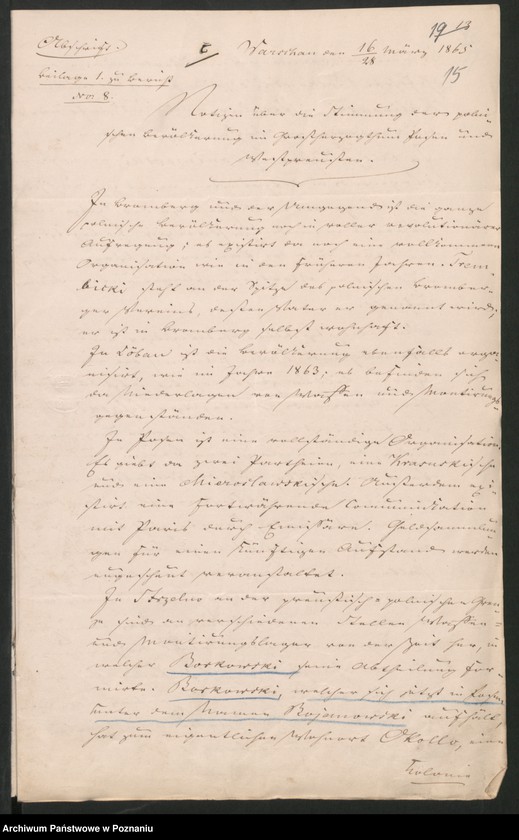 19 13
15
Abschrift.
Warschau den 16/28 März 1865
Beilage 1. zu Bericht
No 8.
Notizen über die Stimmung der polni-
schen Bevölkerung im Großherzogthum Posen und
Westpreußen.
In Bromberg und der Umgegend ist die ganze
polnische Bevölkerung noch in voller revolutionärer
Aufregung; es existirt da noch eine vollkommene
Organisation wie in den früheren Jahren. Trem-
bicki steht an der Spitze des polnischen Bromber-
ger Vereins, dessen Vater er genannt wird;
er ist in Bromberg selbst wohnhaft.
In Löbau ist die Bevölkerung ebenfalls orga-
nisirt, wie im Jahre 1863; es befinden sich
da Niederlagen von Waffen und Montirungs-
gegenständen.
In Posen ist eine vollständige Organisation.
Es giebt da zwei Partheien, eine Krasuskische
und eine Mieroslawskische. Außerdem exi-
stirt eine fortwährende Communikation
mit Paris durch Emissäre. Geldsammlun-
gen für einen künftigen Aufstand werden
ungescheut veranstaltet.
In Strzelno an der preußisch-polnischen Gren-
ze sind an verschiedenen Stellen Waffen-
und Montirungslager von der Zeit her, in
welcher Boskowski seine Abtheilung for-
mirte. Boskowski, welcher sich jetzt in Posen
unter dem Namen Bojanowski aufhält,
hat zum eigentlichen Wohnort Okollo, eine
Kolonie
Archiwum Państwowe w Poznaniu